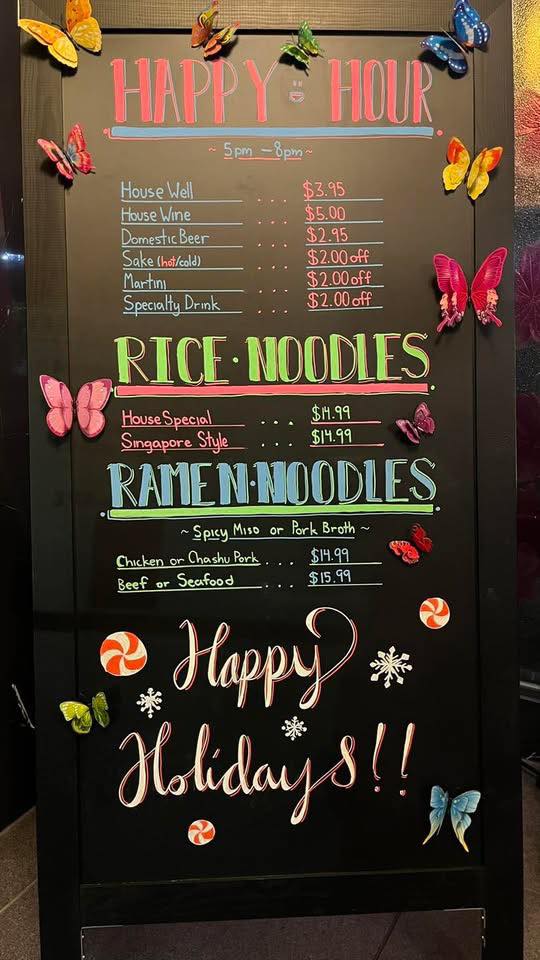 HAPPY HOUR
~ 5pm - 8pm ~
House Well ... $3.95
House Wine ... $5.00
Domestic Beer ... $2.95
Sake (hot/cold) ... $2.00 off
Martini ... $2.00 off
Specialty Drink ... $2.00 off
RICE · NOODLES
House Special ... $14.99
Singapore Style ... $14.99
RAMEN · NOODLES
~ Spicy Miso or Pork Broth ~
Chicken or Chashu Pork ... $14.99
Beef or Seafood ... $15.99
Happy
Holidays!!